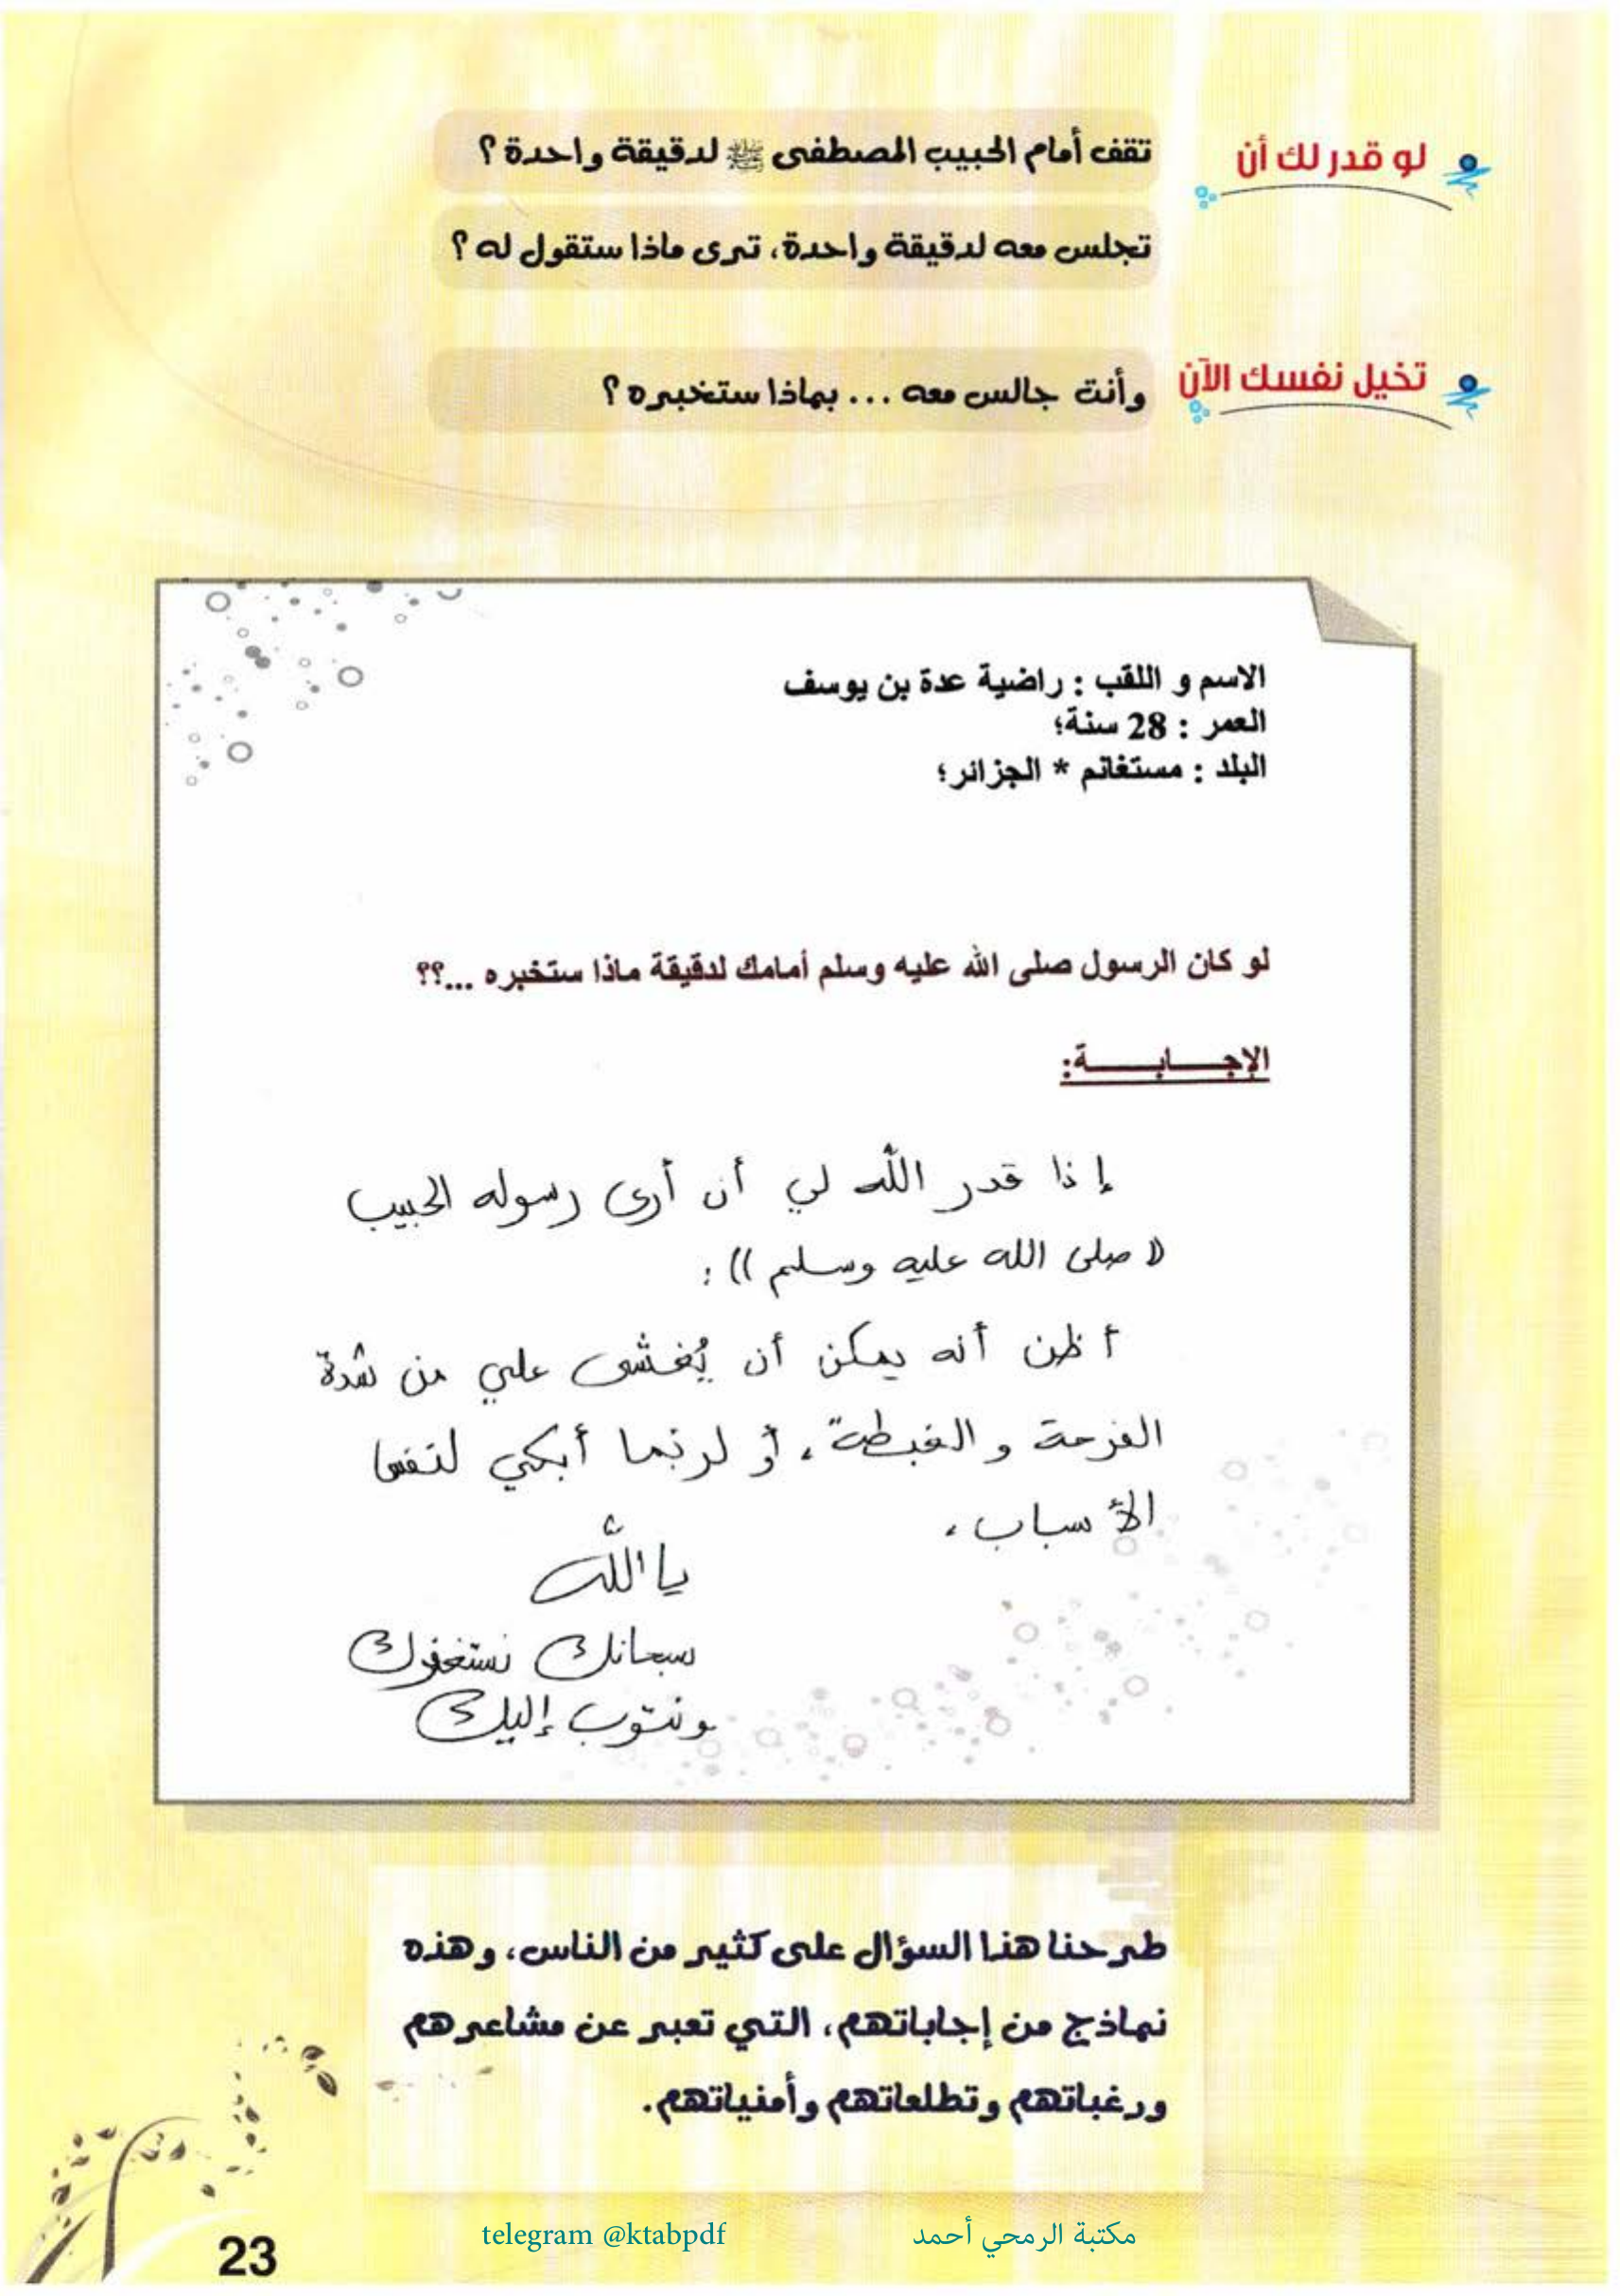 لو قدر لك أن تقف أمام الحبيب المصطفى ﷺ لدقيقة واحدة؟
تجلس معه لدقيقة واحدة، ترى ماذا ستقول له؟
تخيل نفسك الآن وأنت جالس معه ... بماذا ستخبره؟
الاسم و اللقب : راضية عدة بن يوسف
العمر : 28 سنة؛
البلد : مستغانم * الجزائر؛
لو كان الرسول صلى الله عليه وسلم أمامك لدقيقة ماذا ستخبره ...؟؟
الإجـــابـــــة:
إذا قدر الله لي أن أرى رسوله الحبيب
(( صلى الله عليه وسلم )) :
أظن أنه يمكن أن يُغشى علي من شدة
الفرحة و الغبطة، أو لربما أبكي لنفس
الأسباب،
يا الله
سبحانك نستغفرك
ونتوب إليك
طرحنا هذا السؤال على كثير من الناس، وهذه
نماذج من إجاباتهم، التي تعبر عن مشاعرهم
ورغباتهم وتطلعاتهم وأمنياتهم.
مكتبة الرمحي أحمد telegram @ktabpdf
23